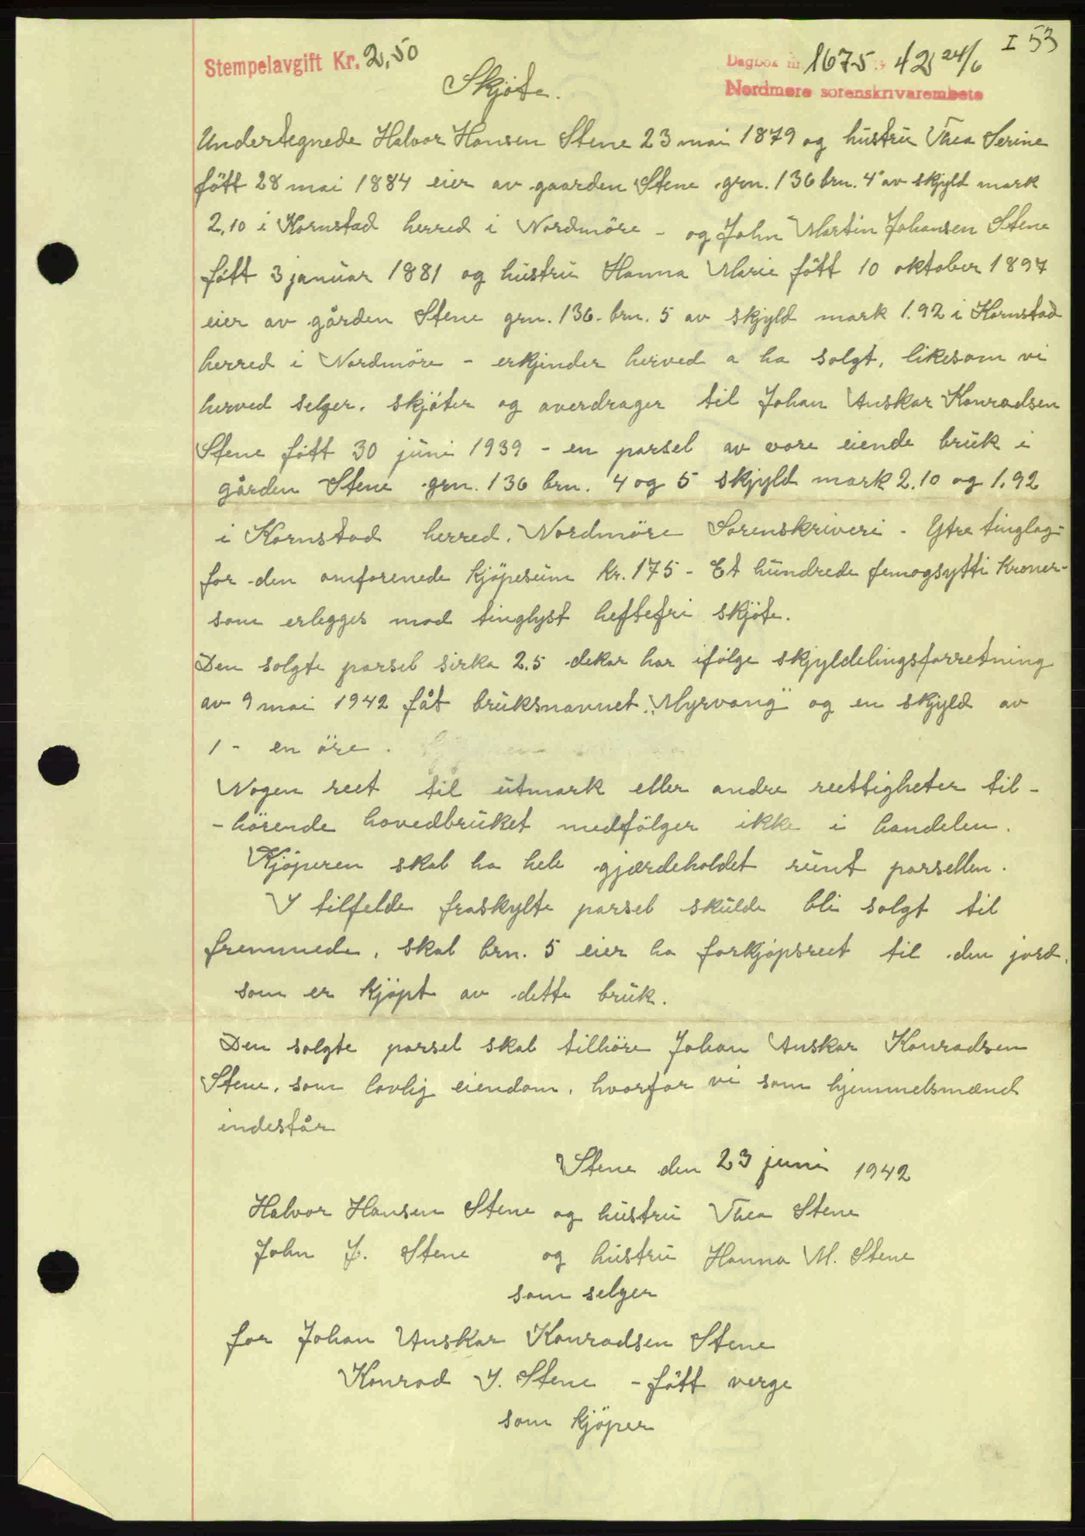 I 53
Stempelavgift Kr. 2,50
Dagbok nr. 1675 42 24/6
Nordmøre sorenskriverembete
Skjöte.
Undertegnede Halvor Hansen Stene 23 mai 1879 og hustru Thea Serine
fött 28 mai 1884 eier av gaarden Stene grn. 136 brn. 4 av skjyld mark
2,10 i Kornstad herred i Nordmöre - og John Martin Johansen Stene
fött 3 januar 1881 og hustru Hanna Marie fött 10 oktober 1897
eier av gården Stene grn. 136. brn. 5 av skjyld mark 1.92 i Kornstad
herred i Nordmöre - erkjender herved a ha solgt, likesom vi
herved selger, skjöter og averdrager til Johan Anskar Konradsen
Stene fött 30 juni 1939 - en parsel av vore eiende bruk i
gården Stene grn. 136 brn. 4 og 5 skjyld mark 2.10 og 1,92
i Kornstad herred, Nordmöre Sorenskriveri - Ytre tinglag-
for den omforenede kjöpesum kr. 175 - Et hundrede femogsytti Kroner-
som erlegges mod tinglyst heftefri skjöte.
Den solgte parsel sirka 2.5 dekar har ifölge skjyldelingsforretning
av 9 mai 1942 fåt bruksnavnet "Myrvang" og en skjyld av
1 - en öre.
Nogen rett til utmark eller andre rettigheter til-
-hörende hovedbruket medfölger ikke i handelen.
Kjöperen skal ha hele gjærdeholdet rundt parsellen.
I tilfelde fraskylte parsel skulde bli solgt til
fremmede, skal brn. 5 eier ha forkjöpsrett til den jord,
som er kjöpt av dette bruk.
Den solgte parsel skal tilhöre Johan Anskar Konradsen
Stene, som lovlig eiendom, hvorfor vi som hjemmelsmænd
indestår
Stene den 23 juni 1942
Halvor Hansen Stene og hustru Thea Stene
John J. Stene og hustru Hanna M. Stene
som selger
for Johan Anskar Konradsen Stene
Konrad I. Stene - fött verge
som kjöper